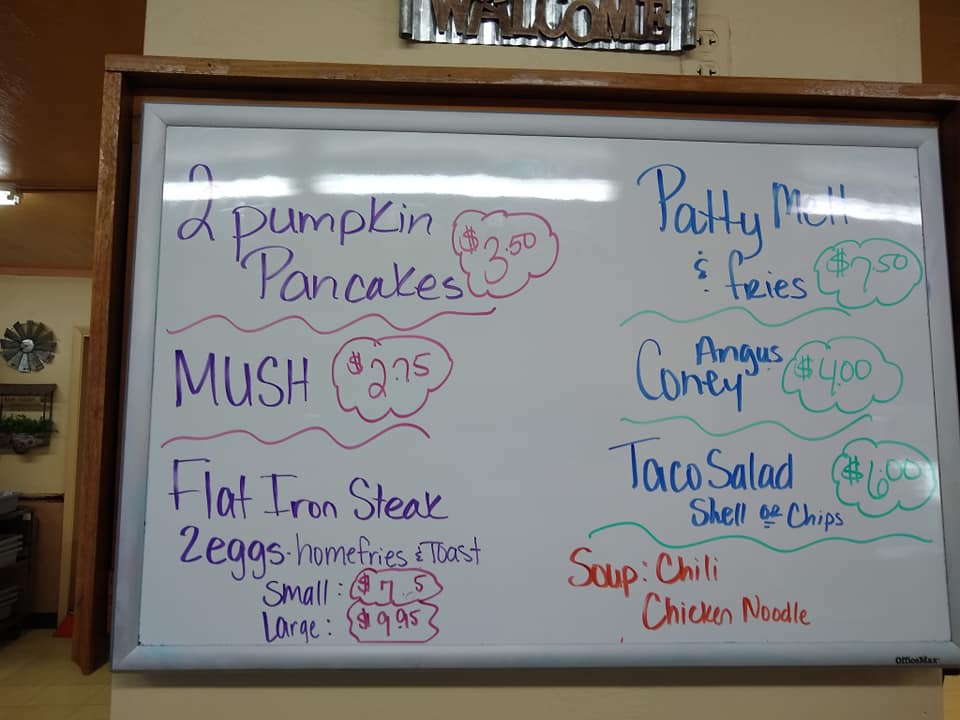 WALCOME
2 pumpkin
Pancakes $3.50
MUSH $2.75
Flat Iron Steak
2eggs - homefries & Toast
Small:
Large: $9.95
Patty Melt
& fries $7.50
Angus
Coney $4.00
Taco Salad $6.00
Shell or Chips
Soup: Chili
Chicken Noodle
OfficeMax